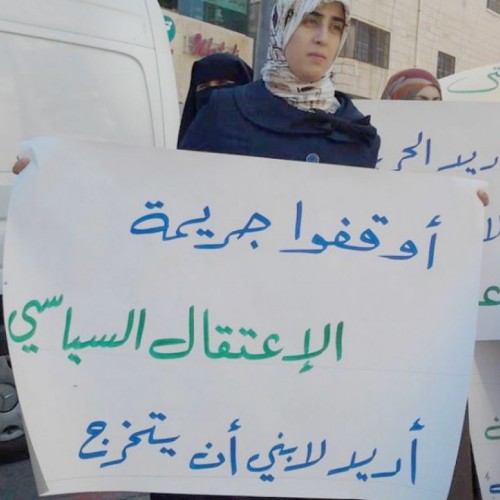 أوقفوا جريمة
الإعتقال السياسي
أريد لابني أن يتخرج
أريد الحر